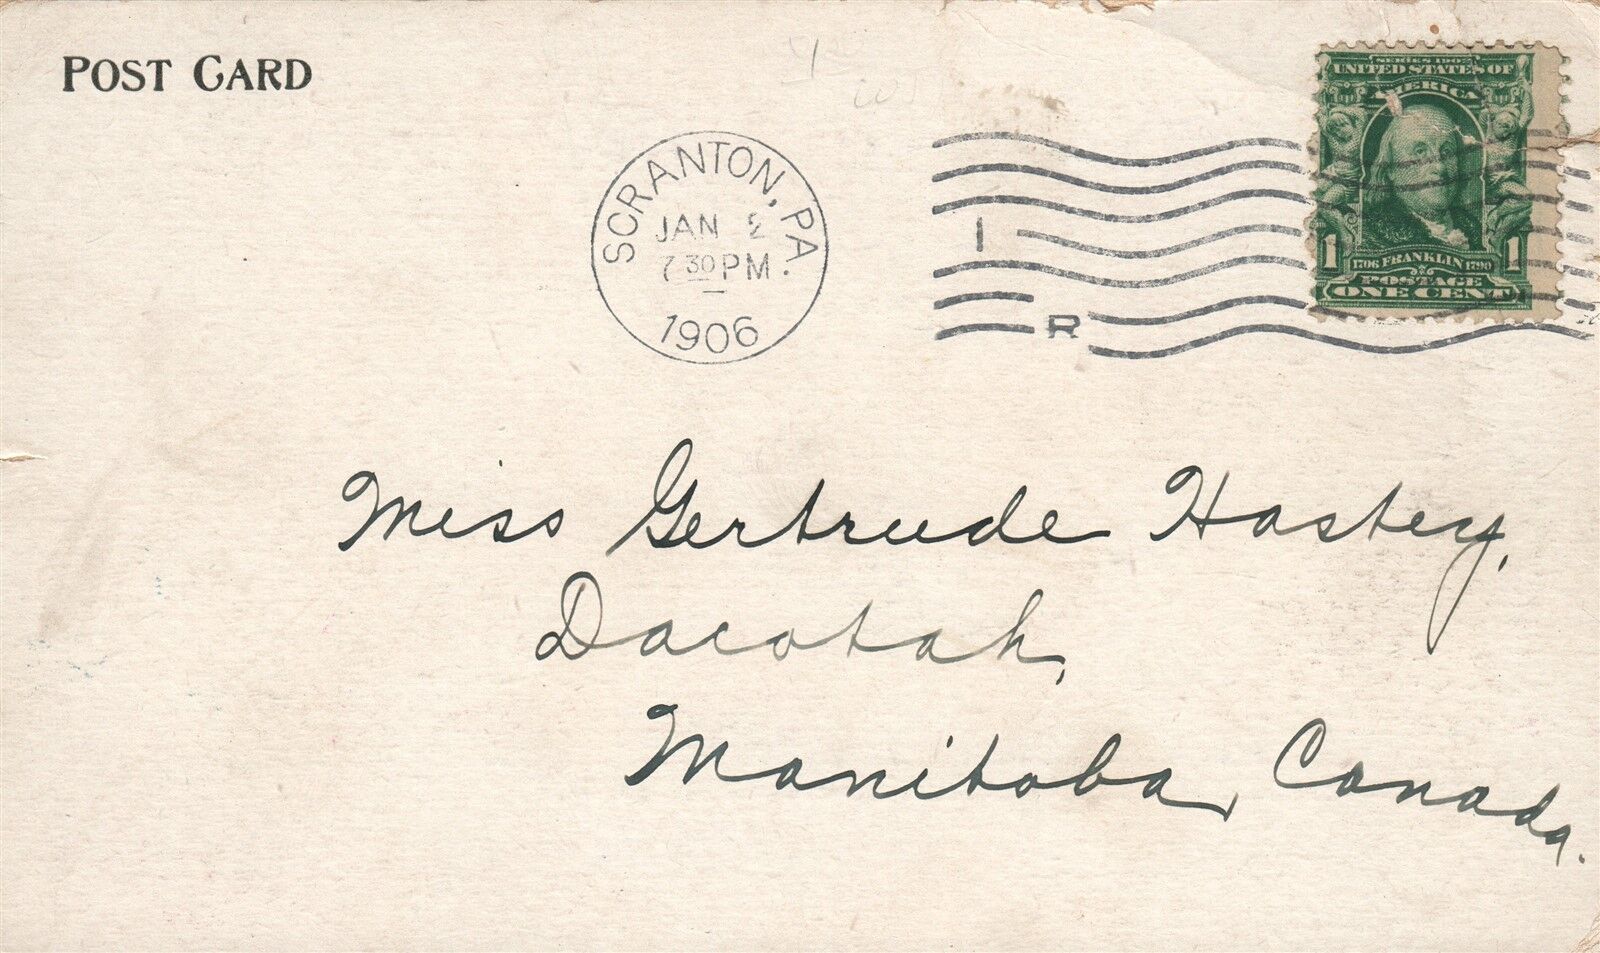 POST CARD
SCRANTON, PA.
JAN 2
7 30 PM
1906
1
R
SERIES 1902
UNITED STATES OF
AMERICA
1 1706 FRANKLIN 1790 1
POSTAGE
ONE CENT
Miss Gertrude Hastey,
Dacotah,
Manitoba, Canada.